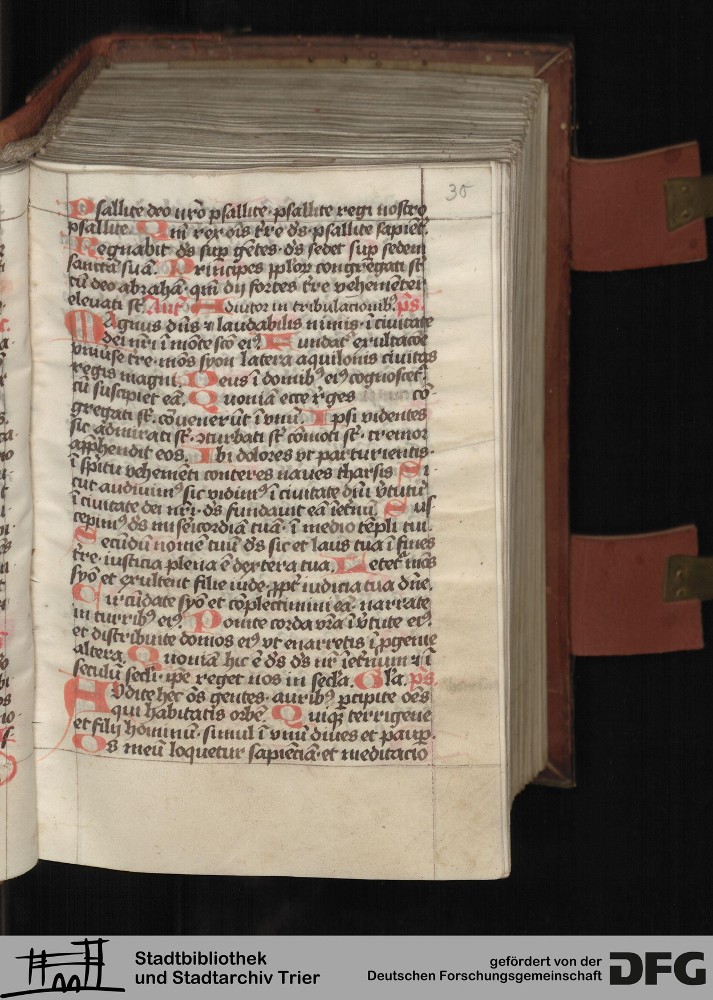 30
Psallite deo nr̄o psallite · psallite regi nostro
psallite. Qm̄ rex oīs t̄re ds̄ · psallite sapiēt̄.
Regnabit ds̄ sup̄ gētes · ds̄ sedet sup̄ sedem
sanctā suā. Principes pp̄lor̄ congregati st̄
cū deo abrahā · qm̄ dij fortes t̄re vehementer
elevati st̄. Ant̄. Adiutor in tribulacionibꝰ. ps̄.
Magnus dn̄s ⁊ laudabilis nimis · ī civitate
dei nr̄i ī mōte scō eiꝰ. Fundat̄ exultacōe
vniuse t̄re · mōs syon latera aquilonis civitas
regis magni. Deus ī domibꝰ eiꝰ cognoscet̄ ·
cū suscipiet eā. Quoniā ecce r̄ges cō-
gregati st̄ · cōvenerūt ī vnū. Ipsi videntes
sic admirati st̄ · ɔturbati st̄ cōmoti st̄ · tremor
app̄hendit eos. Ibi dolores vt parturientis ·
ī spiritu vehemēti conteres naues tharsis Si
cut audiuimꝰ sic vidimꝰ ī civitate dn̄i v̄tutū
ī civitate dei nr̄i · ds̄ fundavit eā īetnū. Sus
cepimꝰ ds̄ mis̄ericordiā tuā · ī medio tēpli tui.
Secūdū nomē tuū ds̄ sic et laus tua ī fines
t̄re · iusticia plena ē dextera tua. Letet̄ mōs
syō et exultent filie iude · pp̄t̄ iudicia tua dn̄e.
Circūdate syō et cōplectimini eā · narrate
in turribꝰ eiꝰ. Ponite corda vr̄a ī v̄tute eiꝰ.
et distribuite domos eiꝰ vt enarretis ī p̄genie
altera. Quoniā hic ē ds̄ ds̄ nr̄ īet̄num ⁊ ī
seculū secl̄i · ip̄e reget nos in secl̄a. Gl̄a. ps̄.
Audite hec ōs gentes · auribꝰ p̄cipite oēs
qui habitatis orbē. Quiq̄ terrigene
et filij hominū · simul ī vnū diues et paup̄.
Os meū loquetur sapiēciā · et meditacio
Stadtbibliothek
und Stadtarchiv Trier
gefördert von der
Deutschen Forschungsgemeinschaft
DFG